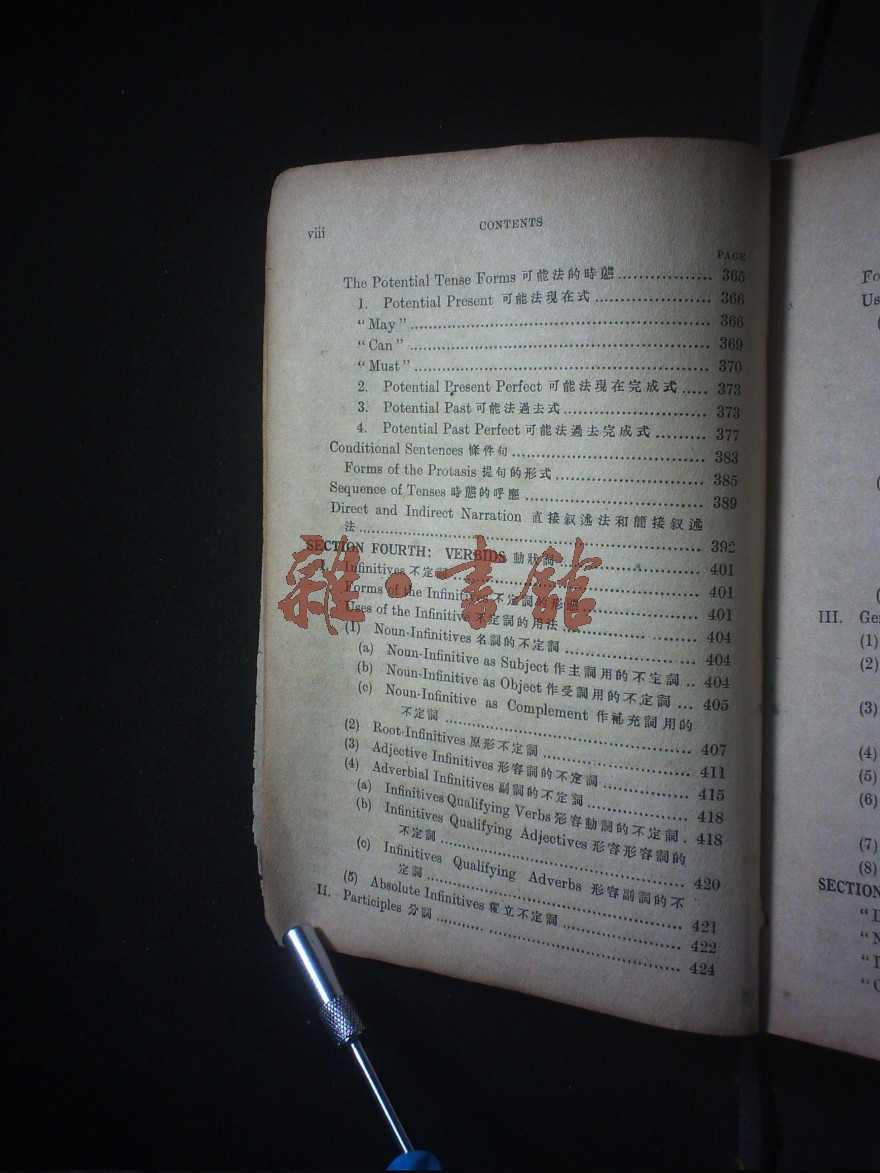 viii CONTENTS
PAGE
The Potential Tense Forms 可能法的時態 ................. 365
1. Potential Present 可能法現在式 .................... 366
“May” .................... 366
“Can” .................... 369
“Must” .................... 370
2. Potential Present Perfect 可能法現在完成式 ..... 373
3. Potential Past 可能法過去式 .................... 373
4. Potential Past Perfect 可能法過去完成式 ......... 377
Conditional Sentences 條件句 .................... 383
Forms of the Protasis 提句的形式 .................... 385
Sequence of Tenses 時態的呼應 .................... 389
Direct and Indirect Narration 直接叙述法和間接叙述
法 .................... 392
SECTION FOURTH: VERBIDS 動狀詞 .................... 401
Infinitives 不定詞 .................... 401
Forms of the Infinitives 不定詞的形 .................... 401
Uses of the Infinitive 不定詞的用法 .................... 404
(1) Noun-Infinitives 名詞的不定詞 .................... 404
(a) Noun-Infinitive as Subject 作主詞用的不定詞 .. 404
(b) Noun-Infinitive as Object 作受詞用的不定詞 ... 405
(c) Noun-Infinitive as Complement 作補充詞用的
不定詞 .................... 407
(2) Root-Infinitives 原形不定詞 .................... 411
(3) Adjective Infinitives 形容詞的不定詞 .................... 415
(4) Adverbial Infinitives 副詞的不定詞 .................... 418
(a) Infinitives Qualifying Verbs 形容動詞的不定詞 . 418
(b) Infinitives Qualifying Adjectives 形容形容詞的
不定詞 .................... 420
(c) Infinitives Qualifying Adverbs 形容副詞的不
定詞 .................... 421
(5) Absolute Infinitives 獨立不定詞 .................... 422
II. Participles 分詞 .................... 424
雜·書館
Fo
Us
(
(
(
III. Ge
(1)
(2)
(3)
(4)
(5)
(6)
(7)
(8)
SECTION
“D
“N
“I
“C